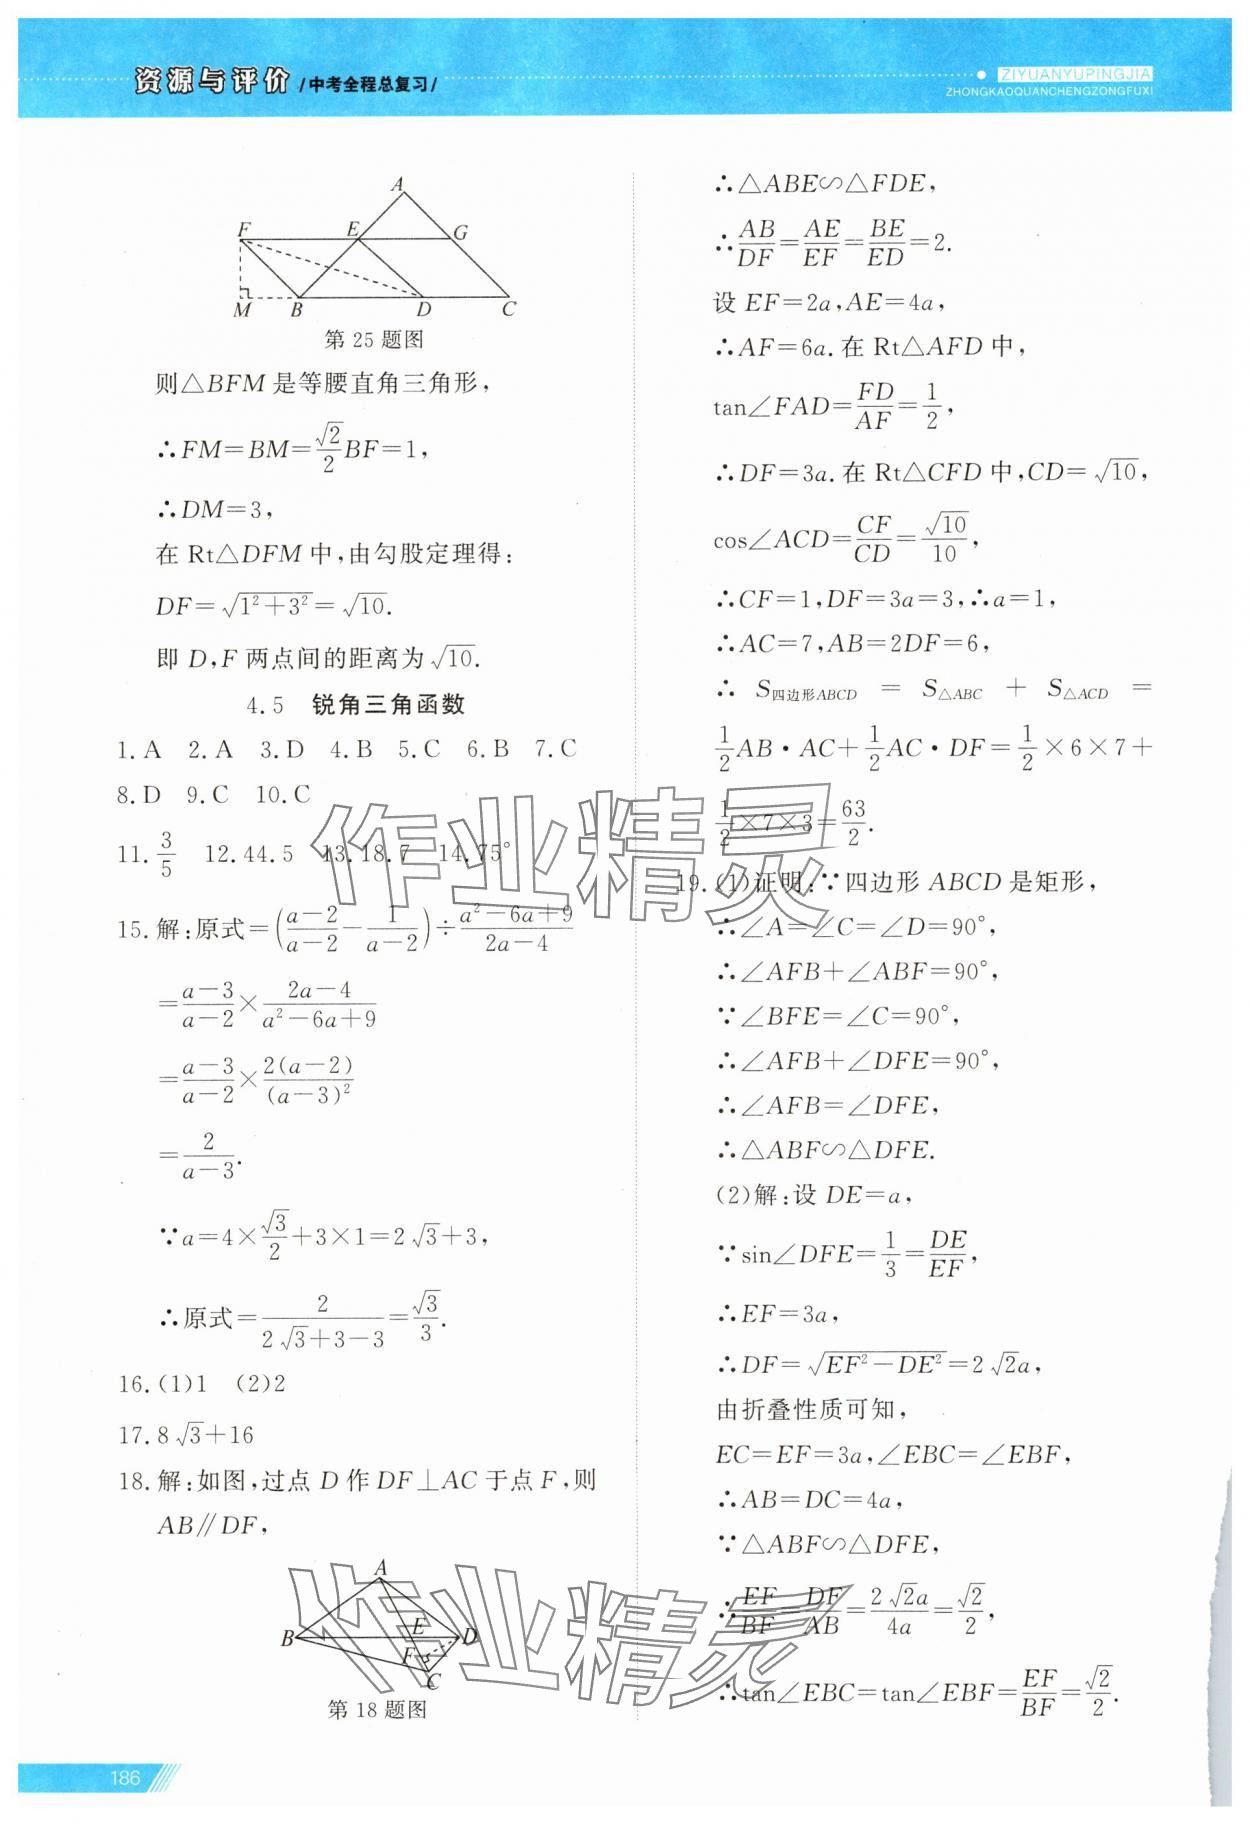 资源与评价 /中考全程总复习/
ZIYUANYUPINGJIA
ZHONGKAOQUANCHENGZONGFUXI
A
F E G
M B D C
第 25 题图
则△BFM 是等腰直角三角形，
∴FM=BM=√2/2 BF=1，
∴DM=3，
在 Rt△DFM 中，由勾股定理得：
DF=√(1²+3²)=√10.
即 D，F 两点间的距离为√10.
4.5 锐角三角函数
1.A 2.A 3.D 4.B 5.C 6.B 7.C
8.D 9.C 10.C
11.3/5 12.44.5 13.18.7 14.75°
15.解：原式=((a-2)/(a-2)-1/(a-2))÷(a²-6a+9)/(2a-4)
=(a-3)/(a-2)×(2a-4)/(a²-6a+9)
=(a-3)/(a-2)×2(a-2)/(a-3)²
=2/(a-3).
∵a=4×√3/2+3×1=2√3+3，
∴原式=2/(2√3+3-3)=√3/3.
16.(1)1 (2)2
17.8√3+16
18.解：如图，过点 D 作 DF⊥AC 于点 F，则
AB∥DF，
A
B E D
F
C
第 18 题图
∴△ABE∽△FDE，
∴AB/DF=AE/EF=BE/ED=2.
设 EF=2a，AE=4a，
∴AF=6a.在 Rt△AFD 中，
tan∠FAD=FD/AF=1/2，
∴DF=3a.在 Rt△CFD 中，CD=√10，
cos∠ACD=CF/CD=√10/10，
∴CF=1，DF=3a=3，∴a=1，
∴AC=7，AB=2DF=6，
∴ S四边形ABCD = S△ABC + S△ACD =
1/2AB·AC+1/2AC·DF=1/2×6×7+
1/2×7×3=63/2.
19.(1)证明：∵四边形 ABCD 是矩形，
∴∠A=∠C=∠D=90°，
∴∠AFB+∠ABF=90°，
∵∠BFE=∠C=90°，
∴∠AFB+∠DFE=90°，
∴∠AFB=∠DFE，
∴△ABF∽△DFE.
(2)解：设 DE=a，
∵sin∠DFE=1/3=DE/EF，
∴EF=3a，
∴DF=√(EF²-DE²)=2√2a，
由折叠性质可知，
EC=EF=3a，∠EBC=∠EBF，
∴AB=DC=4a，
∵△ABF∽△DFE，
∴EF/BF=DF/AB=2√2a/4a=√2/2，
∴tan∠EBC=tan∠EBF=EF/BF=√2/2.
作业精灵
作业精灵
186